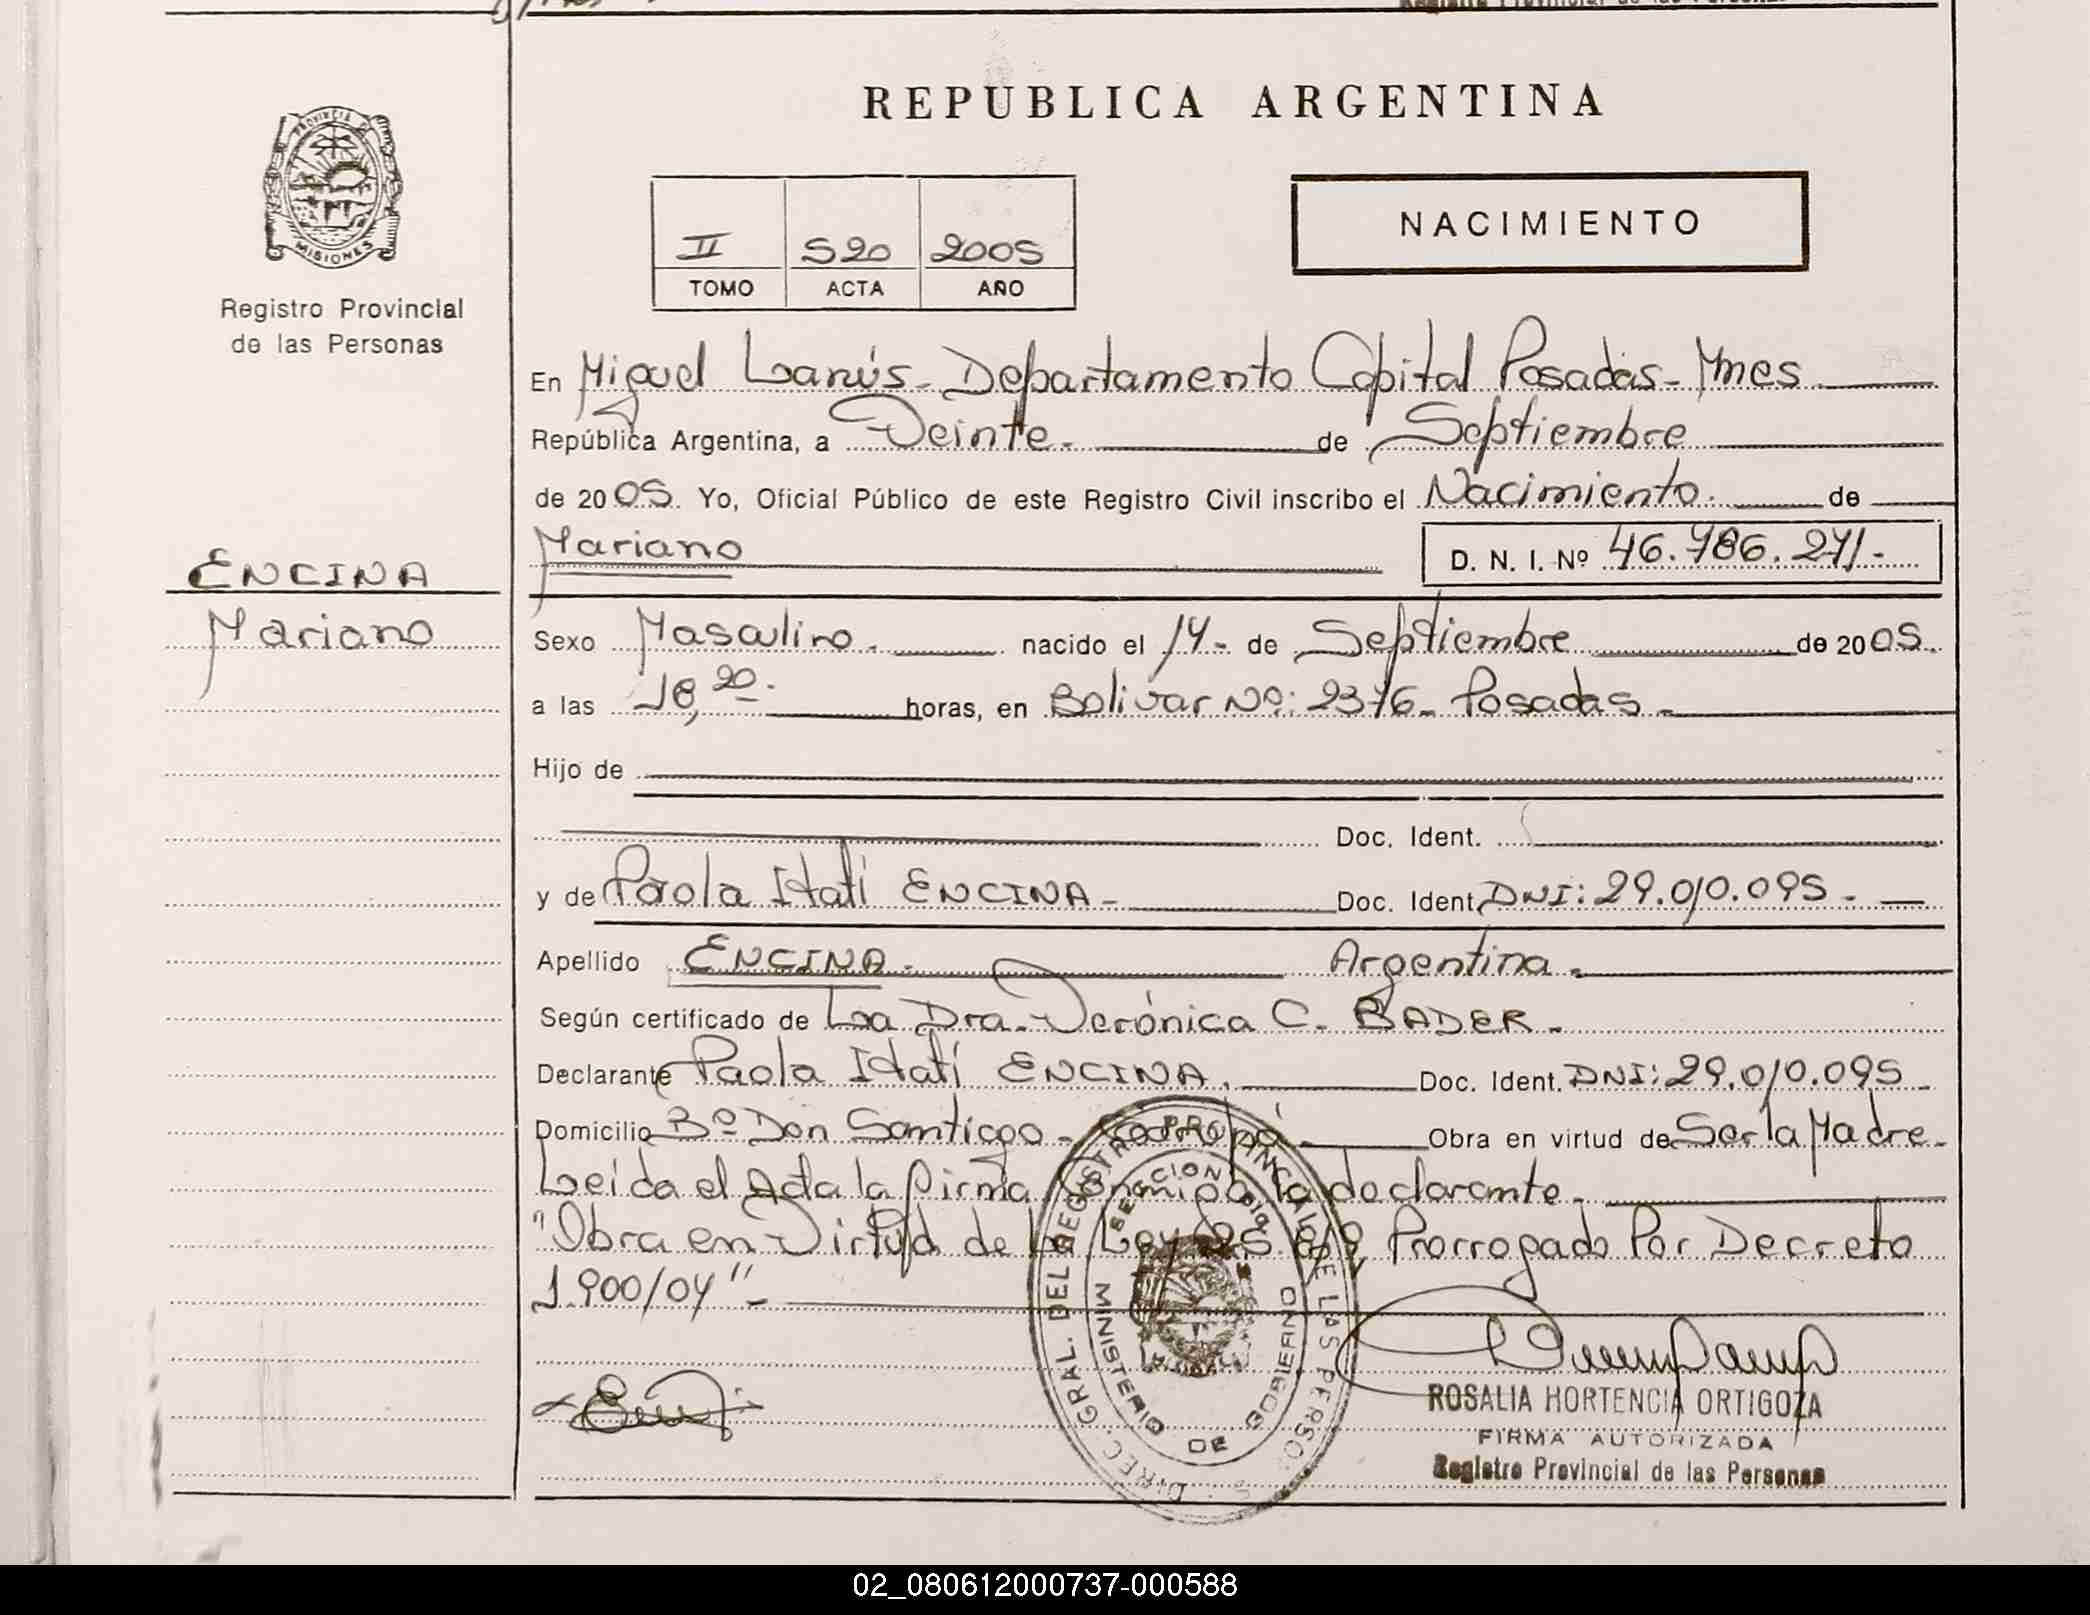 REPUBLICA ARGENTINA
PROVINCIA DE
MISIONES
Registro Provincial
de las Personas
NACIMIENTO
II 520 2005
TOMO ACTA AÑO
En Miguel Lanús - Departamento Capital Posadas - Mnes
República Argentina, a Veinte. de Septiembre
de 2005. Yo, Oficial Público de este Registro Civil inscribo el Nacimiento. de
Mariano D. N. I. Nº 46.786.271.-
ENCINA
Mariano
Sexo Masculino. nacido el 14- de Septiembre de 2005.
a las 18,20. horas, en Bolivar Nº: 2376- Posadas -
Hijo de
Doc. Ident.
y de Paola Itatí ENCINA - Doc. Ident. DNI: 29.010.095 -
Apellido ENCINA - Argentina.
Según certificado de La Dra. Verónica C. BADER -
Declarante Paola Itatí ENCINA. Doc. Ident. DNI: 29.010.095
Domicilio Bº Don Santiago - Obra en virtud de Ser la Madre -
Leida el Acta la firma Conmigo la declarante -
"Obra en Virtud de la Ley 25.819 Prorrogado Por Decreto
1.900/04" -
DIREC. GRAL. DEL REGISTRO PROVINCIAL DE LAS PERSONAS
MINISTERIO DE GOBIERNO
ROSALIA HORTENCIA ORTIGOZA
FIRMA AUTORIZADA
Registro Provincial de las Personas
02_080612000737-000588